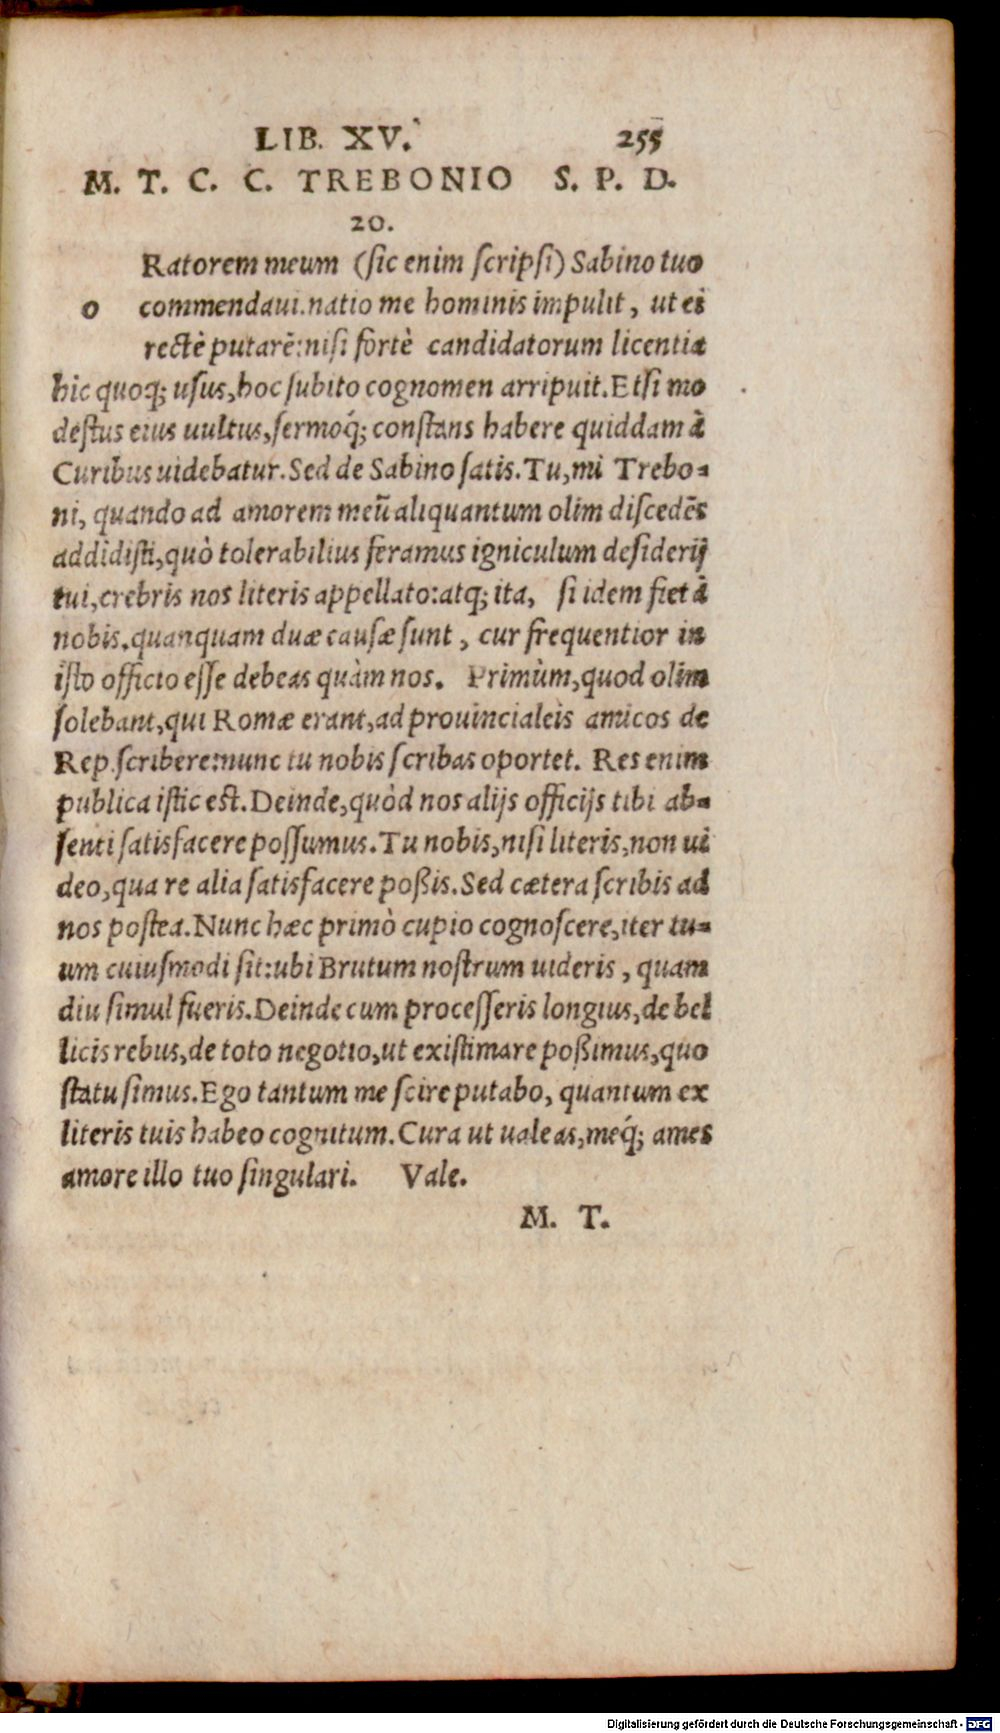 LIB. XV. 255
M. T. C. C. TREBONIO S. P. D.
20.
Ratorem meum (sic enim scripsi) Sabino tuo
o commendaui. natio me hominis impulit, ut ei
rectè putarē: nisi fortè candidatorum licentia
hic quoq; usus, hoc subito cognomen arripuit. Etsi mo
destus eius uultus, sermoq́; constans habere quiddam à
Curibus uidebatur. Sed de Sabino satis. Tu, mi Trebo-
ni, quando ad amorem meū aliquantum olim discedēs
addidisti, quò tolerabilius feramus igniculum desiderij
tui, crebris nos literis appellato: atq; ita, si idem fiet à
nobis. quanquam duæ causæ sunt, cur frequentior in
isto officio esse debeas quàm nos. Primùm, quod olim
solebant, qui Romæ erant, ad prouincialeis amicos de
Rep. scribere: nunc tu nobis scribas oportet. Res enim
publica istic est. Deinde, quòd nos alijs officijs tibi ab-
senti satisfacere possumus. Tu nobis, nisi literis, non ui
deo, qua re alia satisfacere poßis. Sed cætera scribis ad
nos postea. Nunc hæc primò cupio cognoscere, iter tu-
um cuiusmodi sit: ubi Brutum nostrum uideris, quam
diu simul fueris. Deinde cum processeris longius, de bel
licis rebus, de toto negotio, ut existimare poßimus, quo
statu simus. Ego tantum me scire putabo, quantum ex
literis tuis habeo cognitum. Cura ut ualeas, meq́; ames
amore illo tuo singulari. Vale.
M. T.
Digitalisierung gefördert durch die Deutsche Forschungsgemeinschaft - DFG